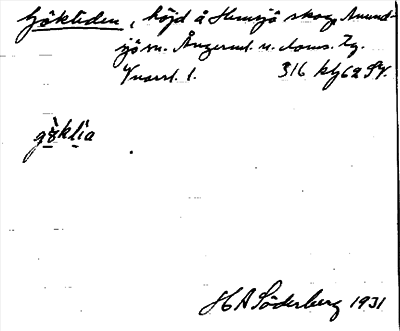 Gökliden, höjd å Hemsjö skog, Anund-
sjö sn. Ångerml. n. doms. Zg.
Kvarrt. 1. 316 kly62 SV.
gökli̇a
H A Söderberg 1931